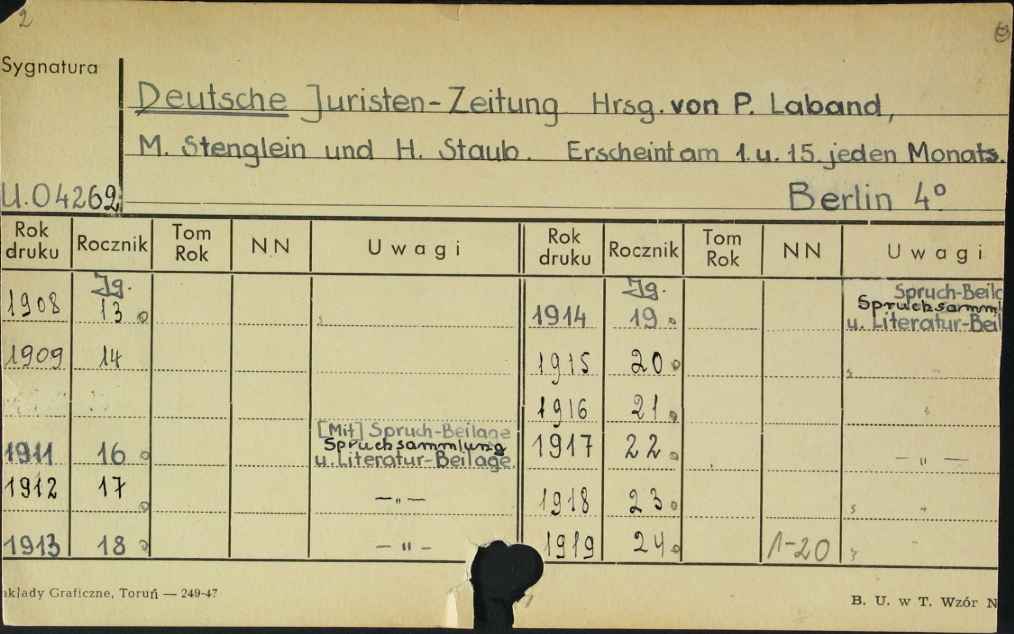 2
Sygnatura
Deutsche Juristen-Zeitung Hrsg. von P. Laband,
M. Stenglein und H. Staub. Erscheint am 1. u. 15. jeden Monats.
U.04262
Berlin 4°
Rok druku Rocznik Tom Rok NN Uwagi Rok druku Rocznik Tom Rok NN Uwagi
Jg. Jg. Spruch-Beila
Spruchsamml
1908 13 1914 19 u. Literatur-Beil
1909 14 1915 20 "
1916 21 "
[Mit] Spruch-Beilage
Spruchsammlung
1911 16 u. Literatur-Beilage. 1917 22 — " —
1912 17 — " — 1918 23 "
1913 18 — " — 1919 24 1-20 "
akłady Graficzne, Toruń — 249-47
B. U. w T. Wzór N